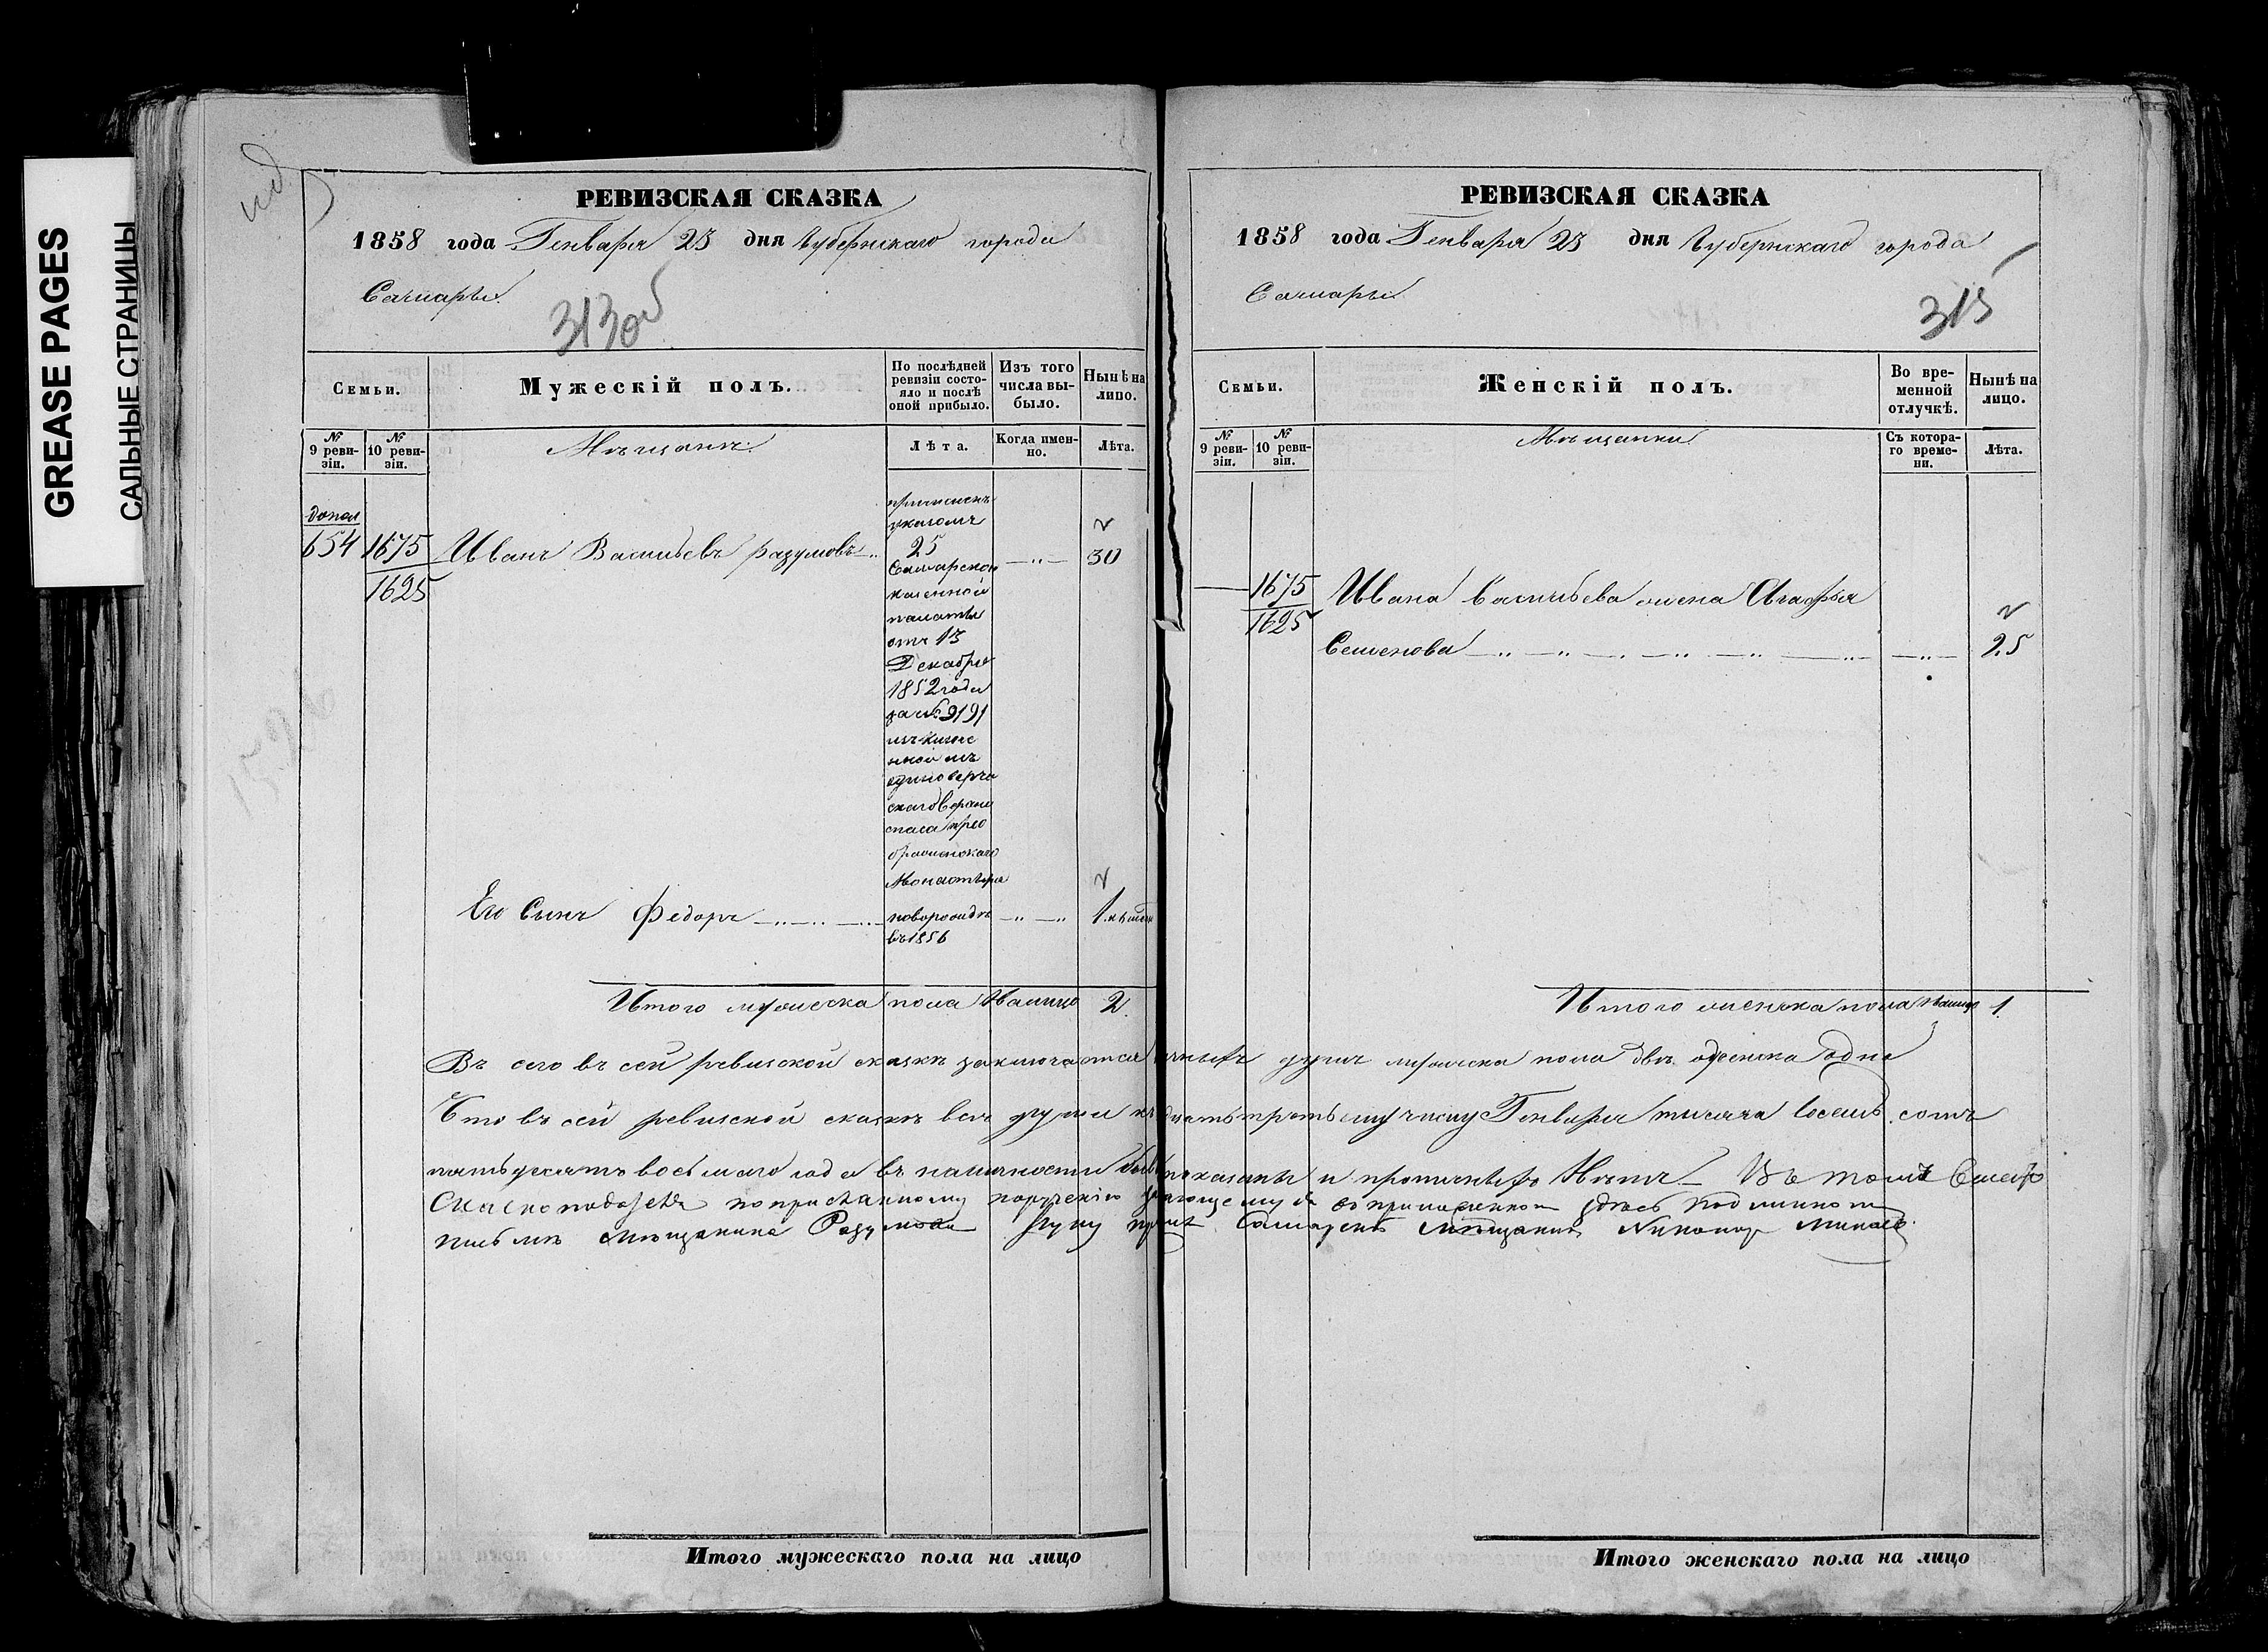 GREASE PAGES
САЛЬНЫЕ СТРАНИЦЫ
РЕВИЗСКАЯ СКАЗКА
1858 года Генваря 23 дня Губернскаго города
Самары
313об
Семьи.
Мужескій полъ.
По послѣдней ревизіи состояло и послѣ оной прибыло.
Изъ того числа выбыло.
Нынѣ на лицо.
№ 9 ревизіи.
№ 10 ревизіи.
Мѣщане
Лѣта.
Когда именно.
Лѣта.
допол
654 1675 Иванъ Васильевъ разумовъ 30
1625
причисленъ
указомъ
25
Самарской
казенной
палаты
отъ 13
Декабря
1852 года
за № 9191
единоверче
скаго Верхне
спаса прео
браженскаго
Монастыря
Его Сынъ Федоръ
новорожден
въ 1856
1
Итого мужеска пола Налицо 2
РЕВИЗСКАЯ СКАЗКА
1858 года Генваря 23 дня Губернскаго города
Самары
315
Семьи.
Женскій полъ.
Во временной отлучкѣ.
Нынѣ на лицо.
№ 9 ревизіи.
№ 10 ревизіи.
Мѣщанки
Съ котораго времени.
Лѣта.
1675 Ивана Васильева жена Агафья
1625
Семенова 25
Итого женска пола Налицо 1
Въ сего въ сей ревизской сказкѣ заключается душъ мужеска пола двѣ, а женска одна
Что въ сей ревизской сказкѣ все души къ дцать третьему числу Генваря тысяча восемь сотъ
пятьдесятъ восьмаго года въ наличности показаны и прописныхъ Нѣтъ Въ томъ Вместо
Сказкоподателя по присланному порученію въ приложенномъ здѣсь подлинномъ
письмѣ мѣщанина Разумова руку Самарскій Мѣщанинъ Никаноръ
Итого мужескаго пола на лицо
Итого женскаго пола на лицо